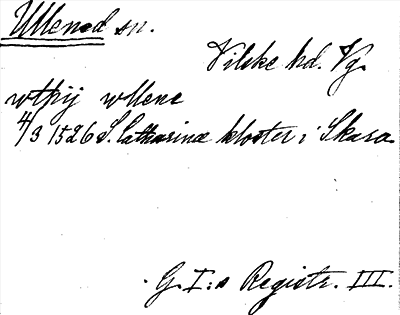 Ullened sn.
Vilske hd. Vg.
wtpij wllene
4/3 1526 S. Catharina kloster i Skara
G. I:s Registr. III.